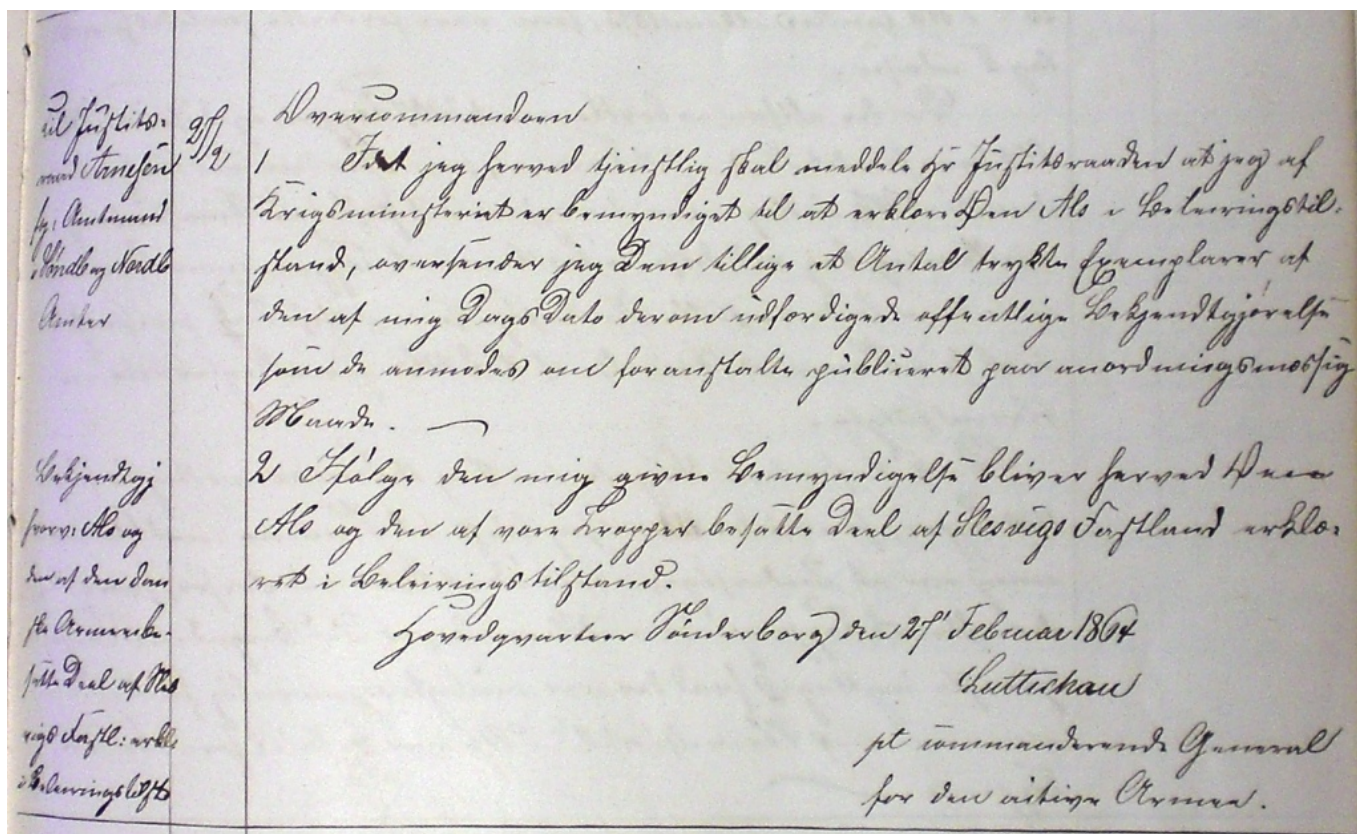 Til Justits-
raad Arnesen
fg: Amtmand
i Sønderb og Nordb
Amter
25/2
Overcommandoen
1 Idet jeg herved tjenstlig skal meddele Hr Justitsraaden at jeg af
Krigsministeriet er bemyndiget til at erklære Øen Als i Beleiringstil-
stand, oversender jeg Dem tillige et Antal trykte Exemplarer af
den af mig Dags Dato derom udfærdigede offentlige Bekjendtgjørelse
som de anmodes om foranstalte publiceret paa anordningsmæssig
Maade. —
Bekjendtgj
hvorv: Als og
den af den dan
ske Armee be-
satte Deel af Sles
vigs Fastl: erkl
i Beleiringstilst
2 Ifølge den mig givne Bemyndigelse bliver herved Øen
Als og den af vore Tropper besatte Deel af Slesvigs Fastland erklæ-
ret i Beleiringstilstand.
Hovedqvarteer Sønderborg den 25' Februar 1864
Luttichau
pt commanderende General
for den active Armee.